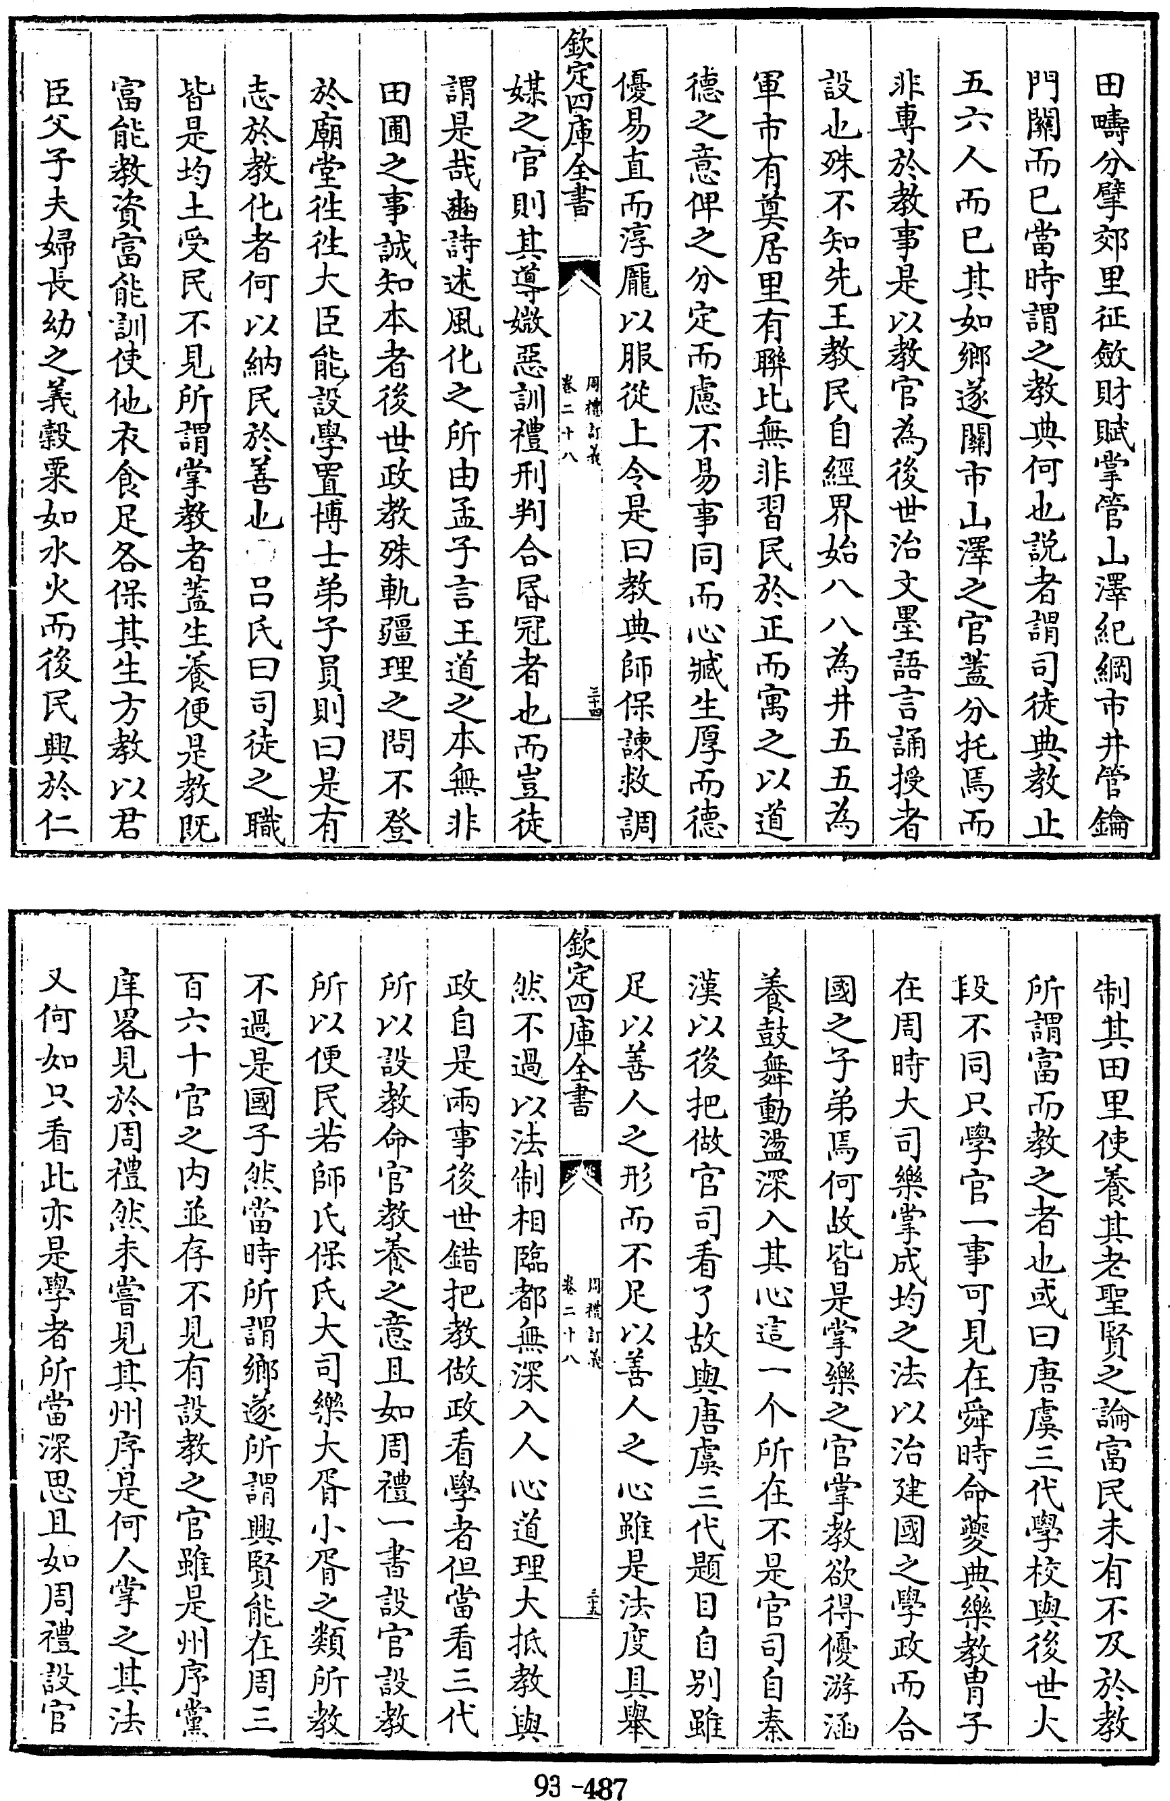 田疇分擘郊里征斂財賦掌管山澤紀綱市井管鑰
門關而已當時謂之教典何也説者謂司徒典教止
五六人而已其如鄉遂關市山澤之官蓋分托焉而
非專於教事是以教官為後世治文墨語言誦授者
設也殊不知先王教民自經界始八八為井五五為
軍市有奠居里有聯比無非習民於正而寓之以道
德之意俾之分定而慮不易事同而心臧生厚而德
優易直而淳龎以服從上令是曰教典師保諫救調
欽定四庫全書
周禮訂義
卷二十八
三十四
媒之官則其導媺惡訓禮刑判合昏冠者也而豈徒
謂是哉豳詩述風化之所由孟子言王道之本無非
田圃之事誠知本者後世政教殊軌疆理之問不登
於廟堂徃徃大臣能設學置博士弟子員則曰是有
志於教化者何以納民於善也 吕氏曰司徒之職
皆是均土受民不見所謂掌教者蓋生養便是教既
富能教資富能訓使他衣食足各保其生方教以君
臣父子夫婦長幼之義穀粟如水火而後民興於仁
制其田里使養其老聖賢之論富民未有不及於教
所謂富而教之者也或曰唐虞三代學校與後世大
段不同只學官一事可見在舜時命夔典樂教胄子
在周時大司樂掌成均之法以治建國之學政而合
國之子弟焉何故皆是掌樂之官掌教欲得優游涵
養鼓舞動盪深入其心這一个所在不是官司自秦
漢以後把做官司看了故與唐虞三代題目自别雖
足以善人之形而不足以善人之心雖是法度具舉
欽定四庫全書
周禮訂義
卷二十八
三十五
然不過以法制相臨都無深入人心道理大抵教與
政自是兩事後世錯把教做政看學者但當看三代
所以設教命官教養之意且如周禮一書設官設教
所以便民若師氏保氏大司樂大胥小胥之類所教
不過是國子然當時所謂鄉遂所謂興賢能在周三
百六十官之内並存不見有設教之官雖是州序黨
庠畧見於周禮然未嘗見其州序是何人掌之其法
又何如只看此亦是學者所當深思且如周禮設官
93-487